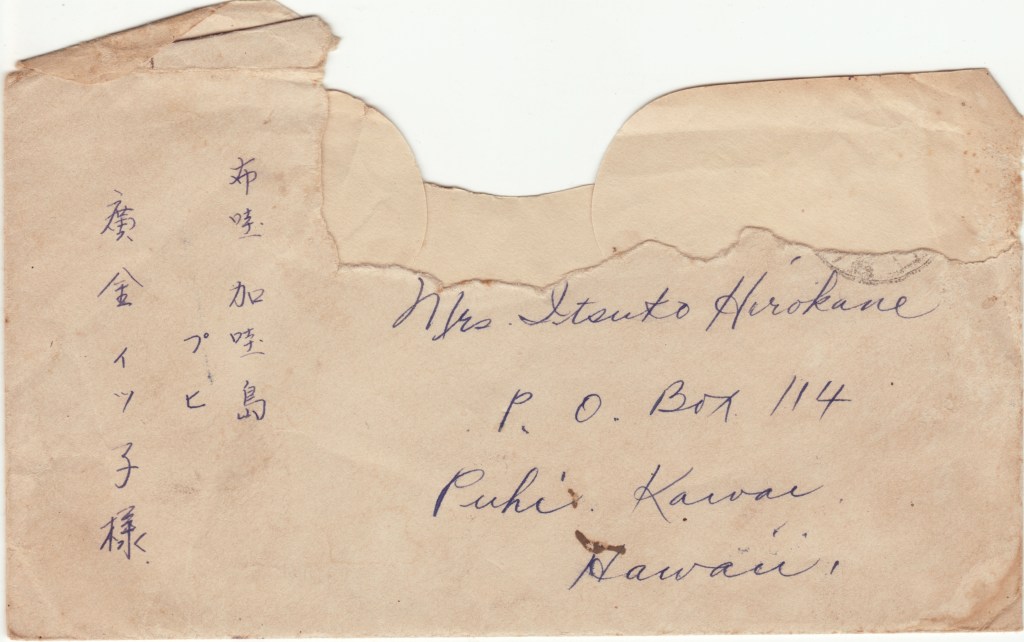 布哇 加哇島
プヒ
廣金イツ子様
Mrs. Itsuko Hirokane
P. O. Box 114
Puhi. Kawai
Hawaii.